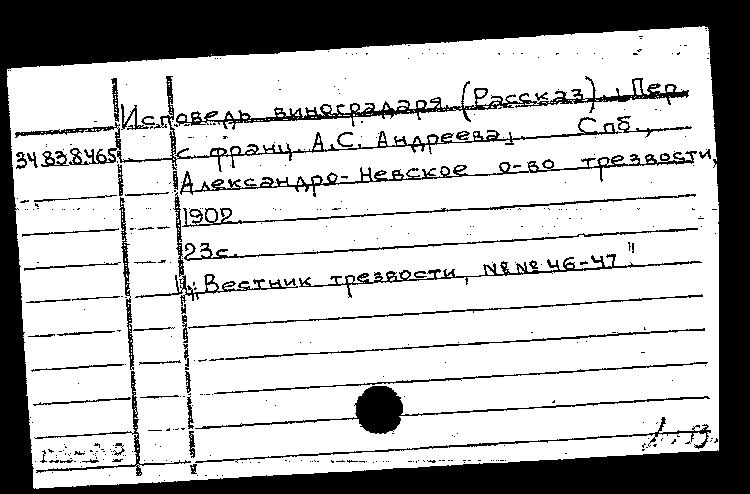 Исповедь виноградаря. (Рассказ). Пер.
34.83.8.465 с франц. А.С. Андреева. Спб.,
Александро-Невское о-во трезвости,
1902.
23 с.
"Вестник трезвости, №№ 46-47"